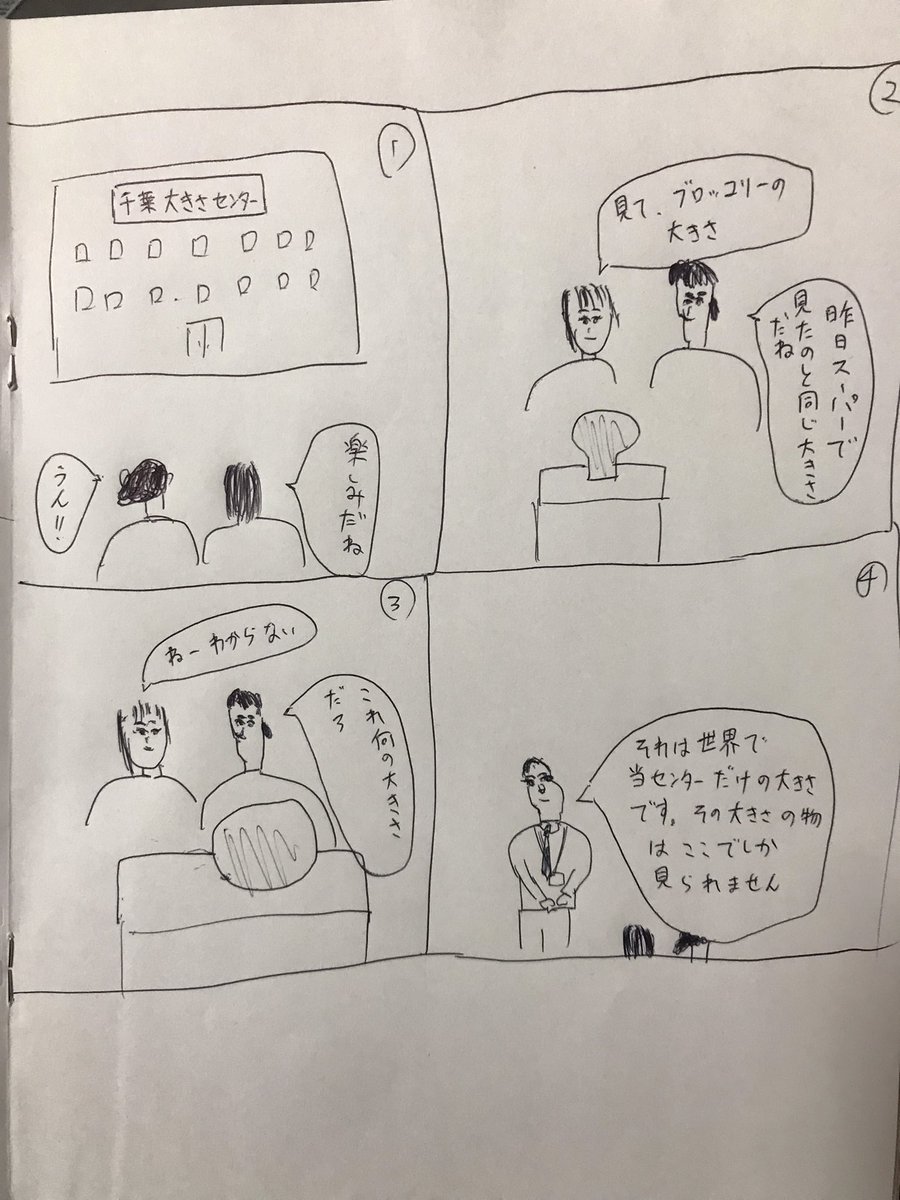 ①
千葉大きさセンター
楽しみだね
うん!!
②
見て、ブロッコリーの
大きさ
昨日スーパーで
見たのと同じ大きさ
だね
③
ねーわからない
これ何の大きさ
だろ
④
それは世界で
当センターだけの大きさ
です。その大きさの物
はここでしか
見られません